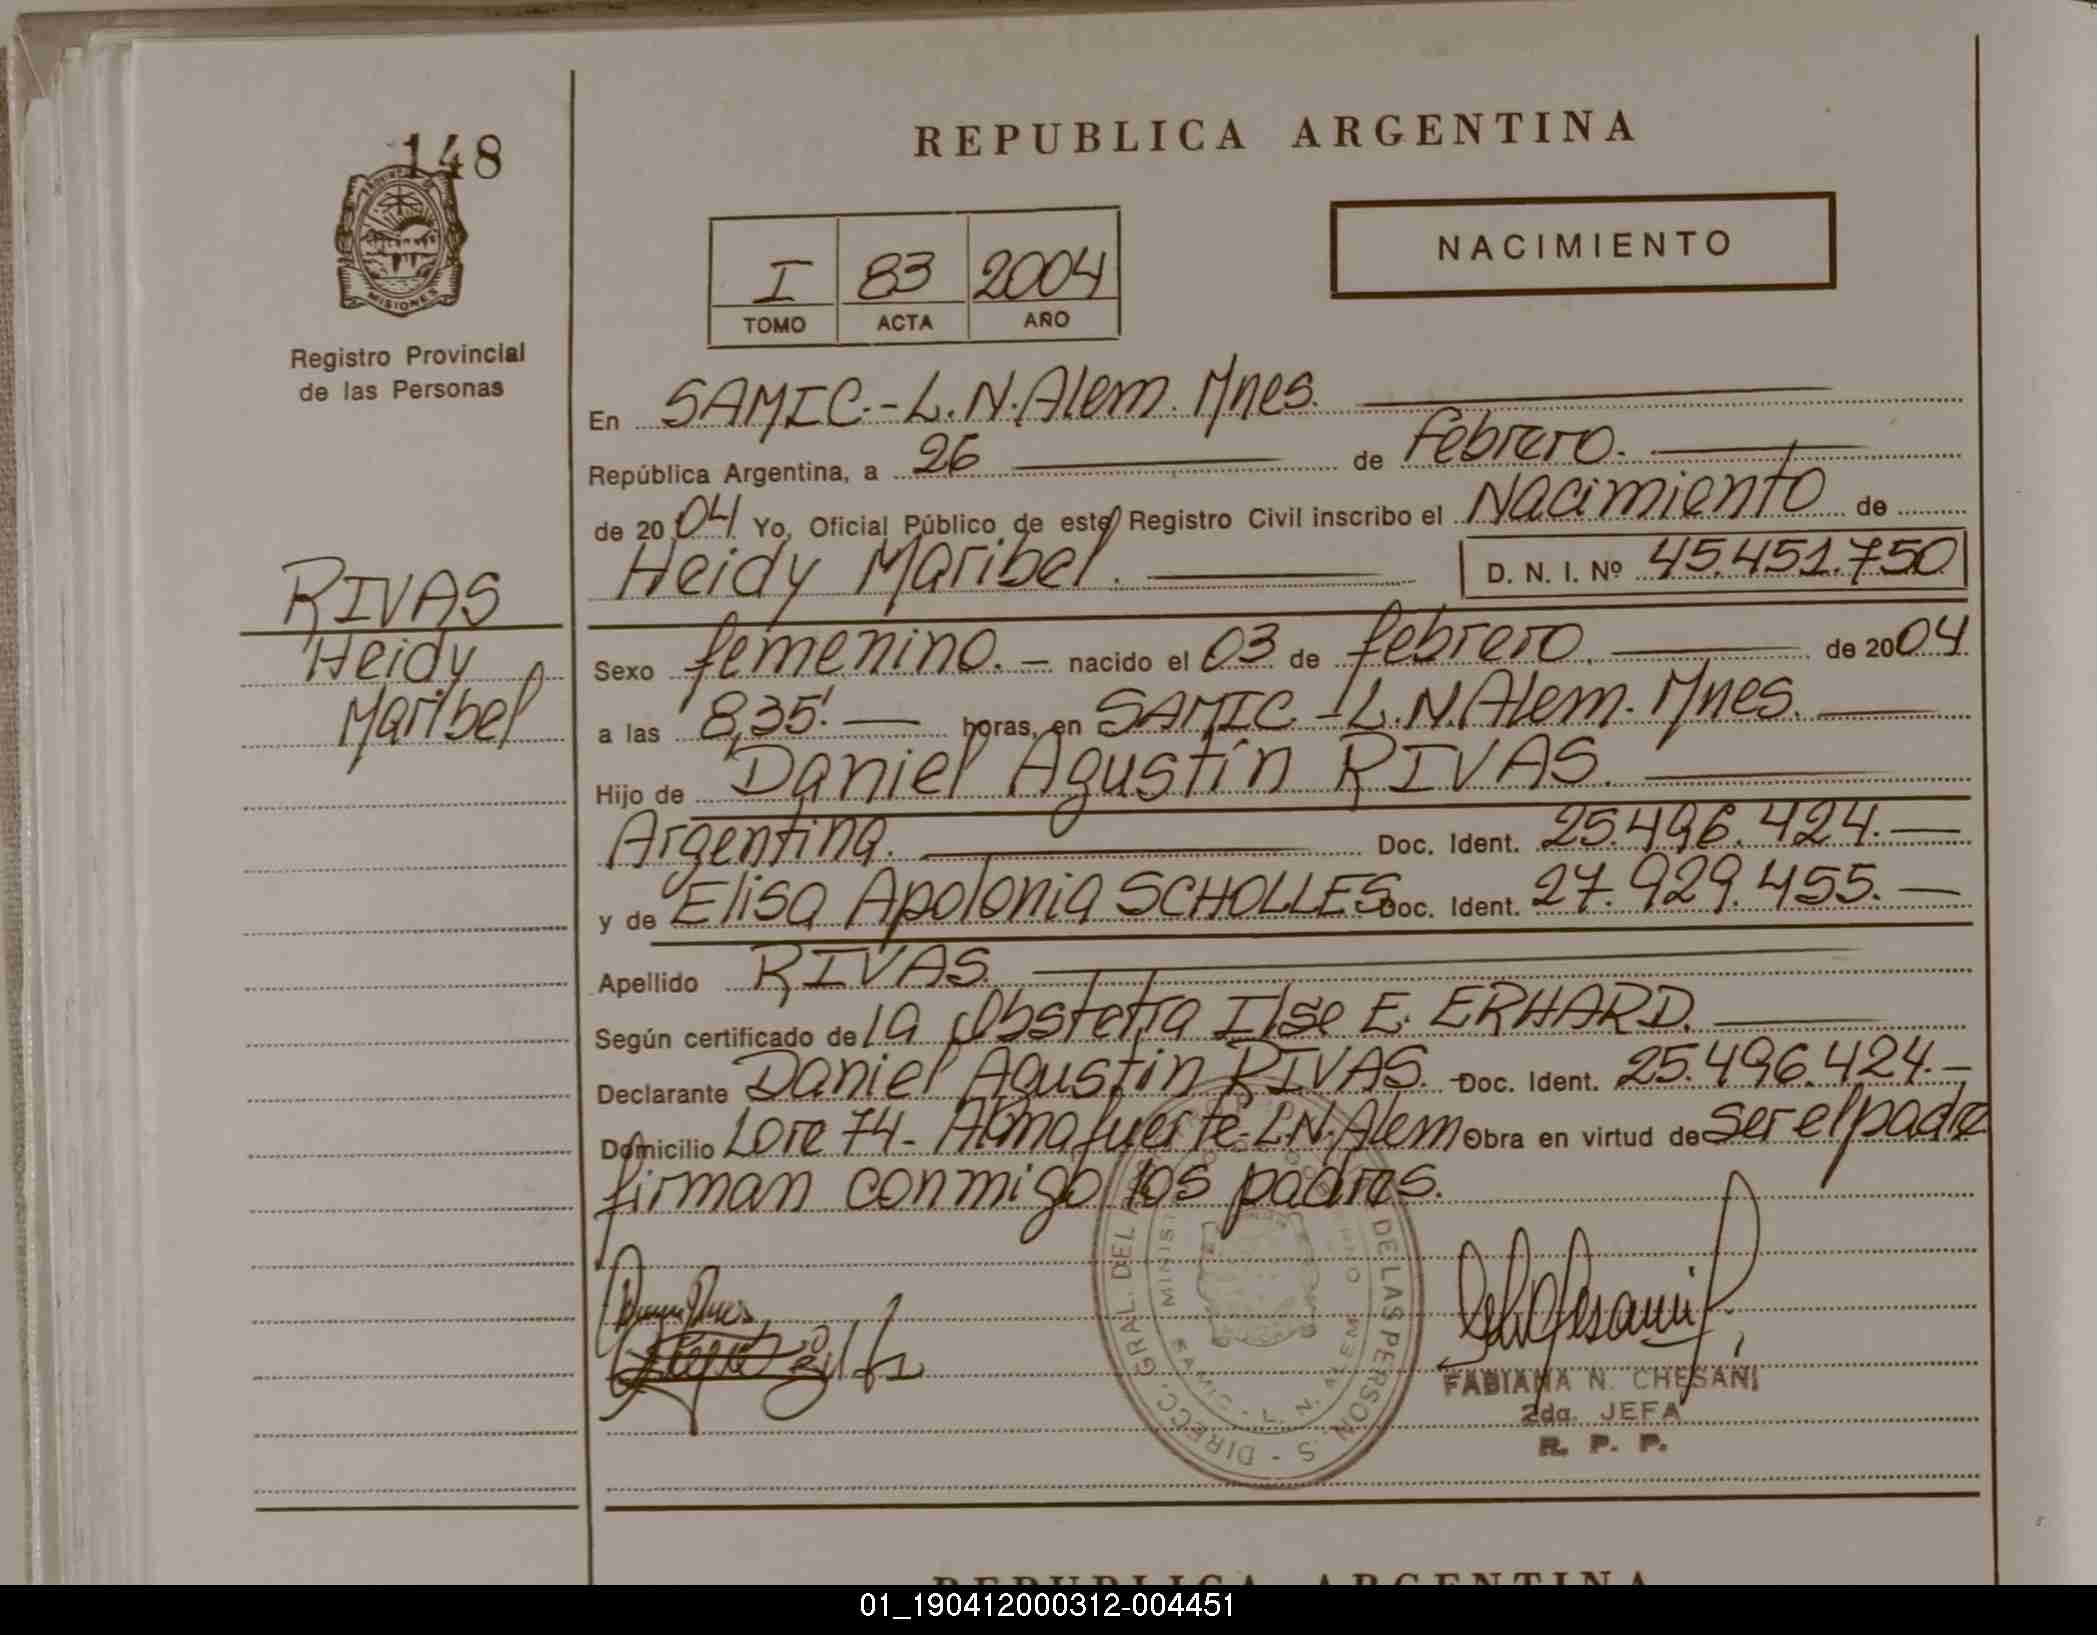 148
PROVINCIA DE
MISIONES
Registro Provincial
de las Personas
RIVAS
Heidy
Maribel
REPUBLICA ARGENTINA
I 83 2004
TOMO ACTA AÑO
NACIMIENTO
En SAMIC.-L.N.Alem. Mnes.
República Argentina, a 26 de Febrero.
de 2004 Yo, Oficial Público de este Registro Civil inscribo el Nacimiento de
Heidy Maribel. D. N. I. Nº 45.451.750
Sexo femenino. nacido el 03 de febrero. de 2004.
a las 8,35'. horas, en SAMIC - L.N.Alem. Mnes.
Hijo de Daniel Agustín RIVAS.
Argentina. Doc. Ident. 25.496.424.
y de Elisa Apolonia SCHOLLES Doc. Ident. 27.929.455.
Apellido RIVAS.
Según certificado de la Obstetra Ilse E. ERHARD.
Declarante Daniel Agustín RIVAS. Doc. Ident. 25.496.424.
Domicilio Lote 74- Almafuerte-L.N.Alem Obra en virtud de ser el padre
firman conmigo los padres.
DIRECC. GRAL. DEL DE LAS PERSON S
SAMIC - L. N. ALEM
FABIANA N. CHESANI
2da. JEFA
R. P. P.
REPUBLICA ARGENTINA
01_190412000312-004451